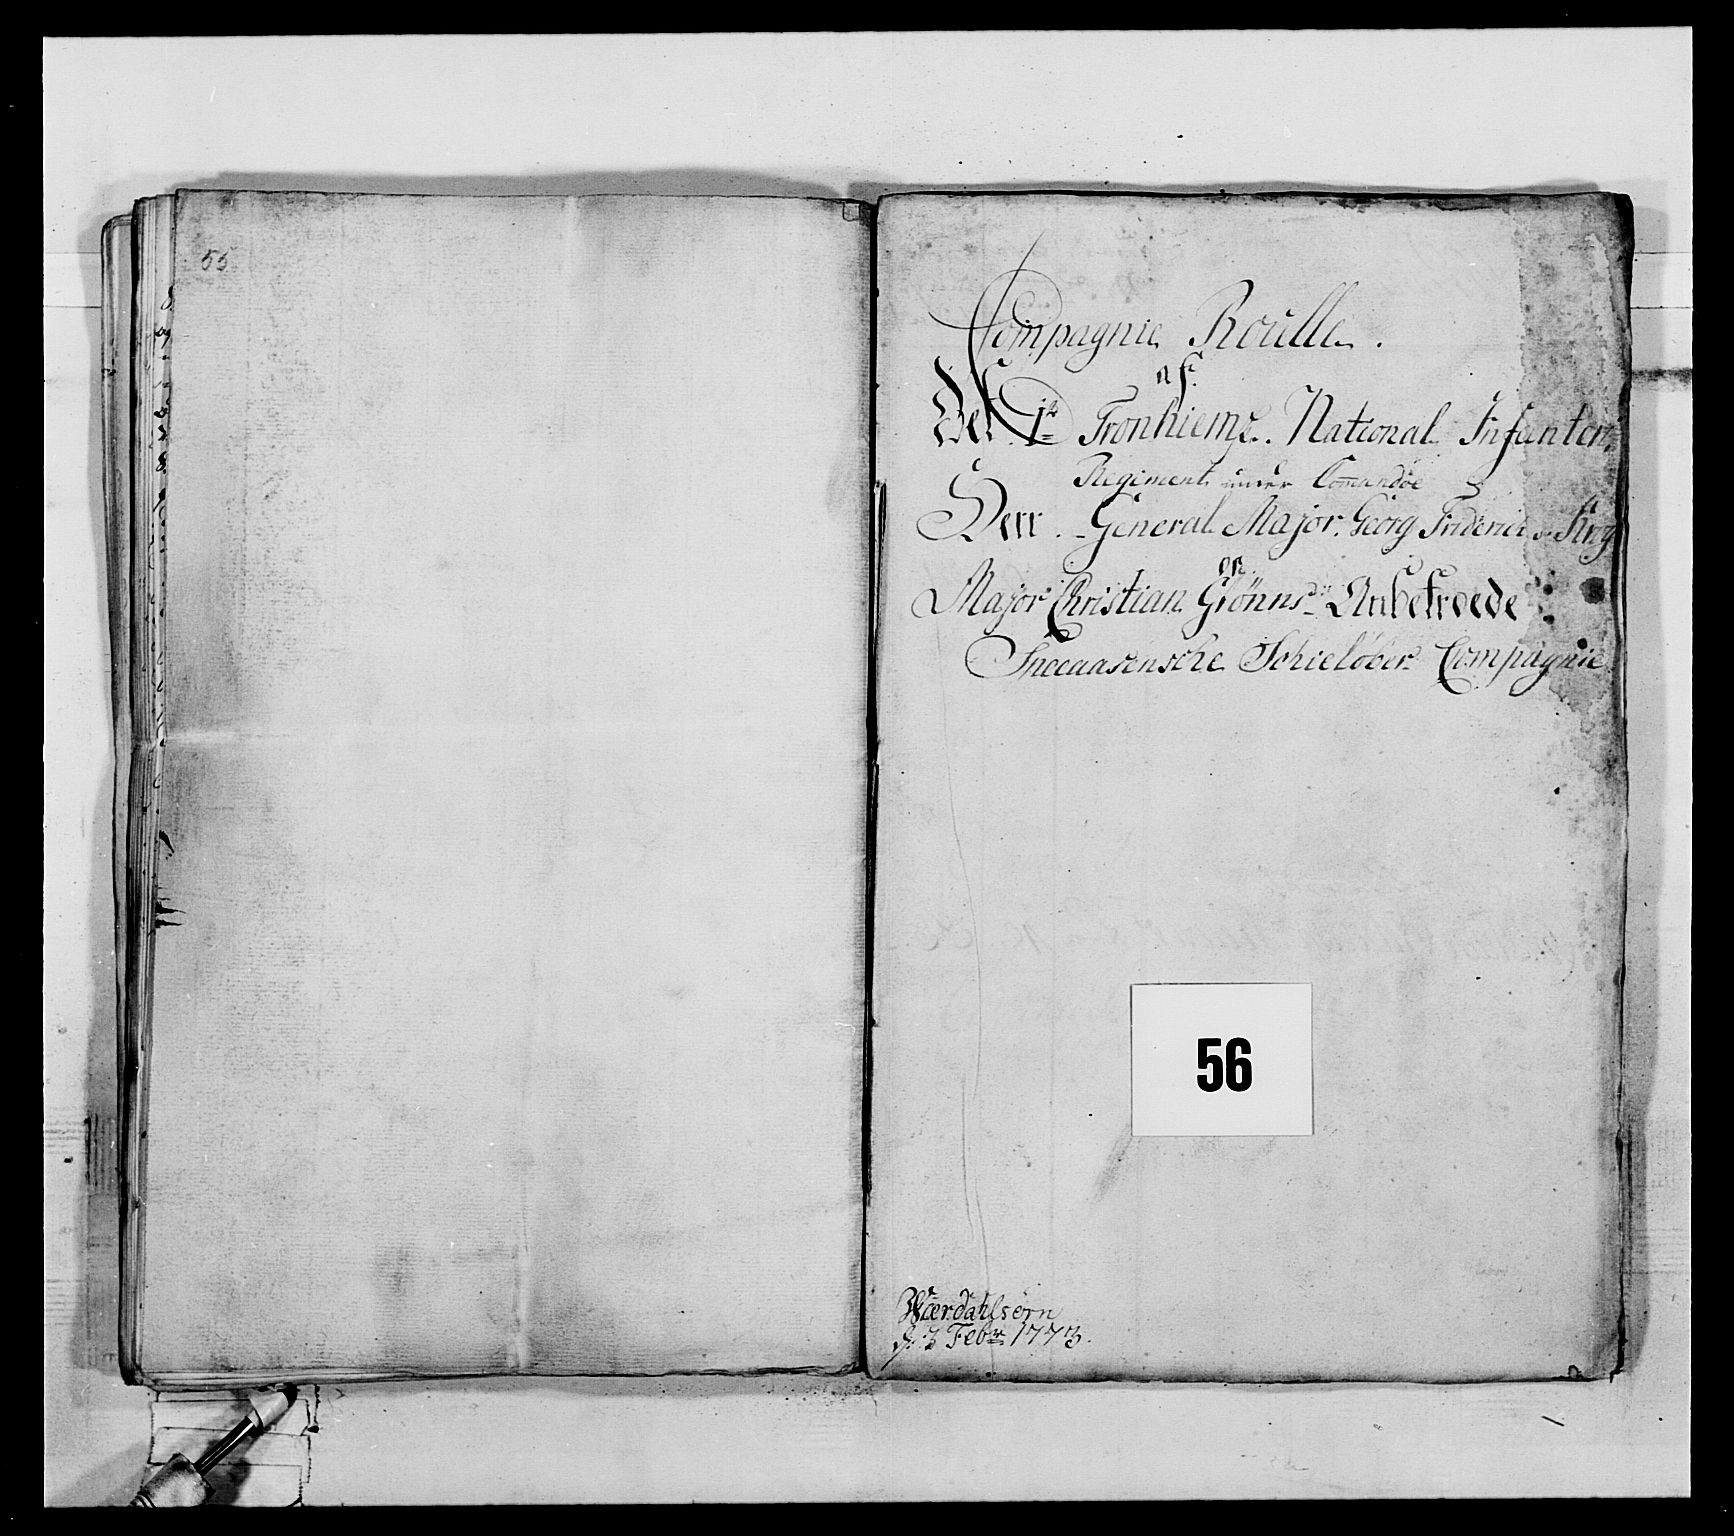 55
Compagnie Roulle.
af
Det 1te Tronhiemsz. National Infanterie
Regiment under Comandoe
Herr. General Major. Georg Friderich v. Krog
og
Major Christian Grønns Anbetroede
Sneeaasensche Schieløber Compagnie
56
Wærdahlsørn
d. 3 Febr 1773.